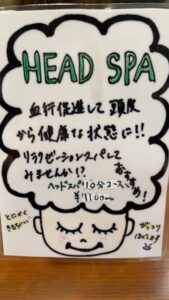 HEAD SPA
血行促進して 頭皮
から健康な状態に!!
リラクゼーションスパして
みませんか!?
おすすめ!
ヘッドスパ 10分コース
¥1100
とにかく
きもちいい